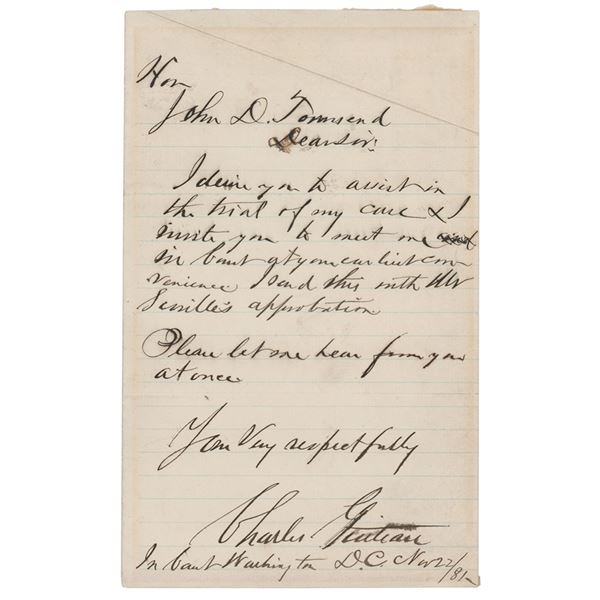 Hon
John D. Townsend
Dear Sir:
I desire you to assist in
the trial of my case & I
invite you to meet me
in Court at your earliest con-
venience I send this with Mr
Scoville's approbation
Please let me hear from you
at once
Your Very respectfully
Charles Guiteau
In Court Washington D.C. Nov 22/81-